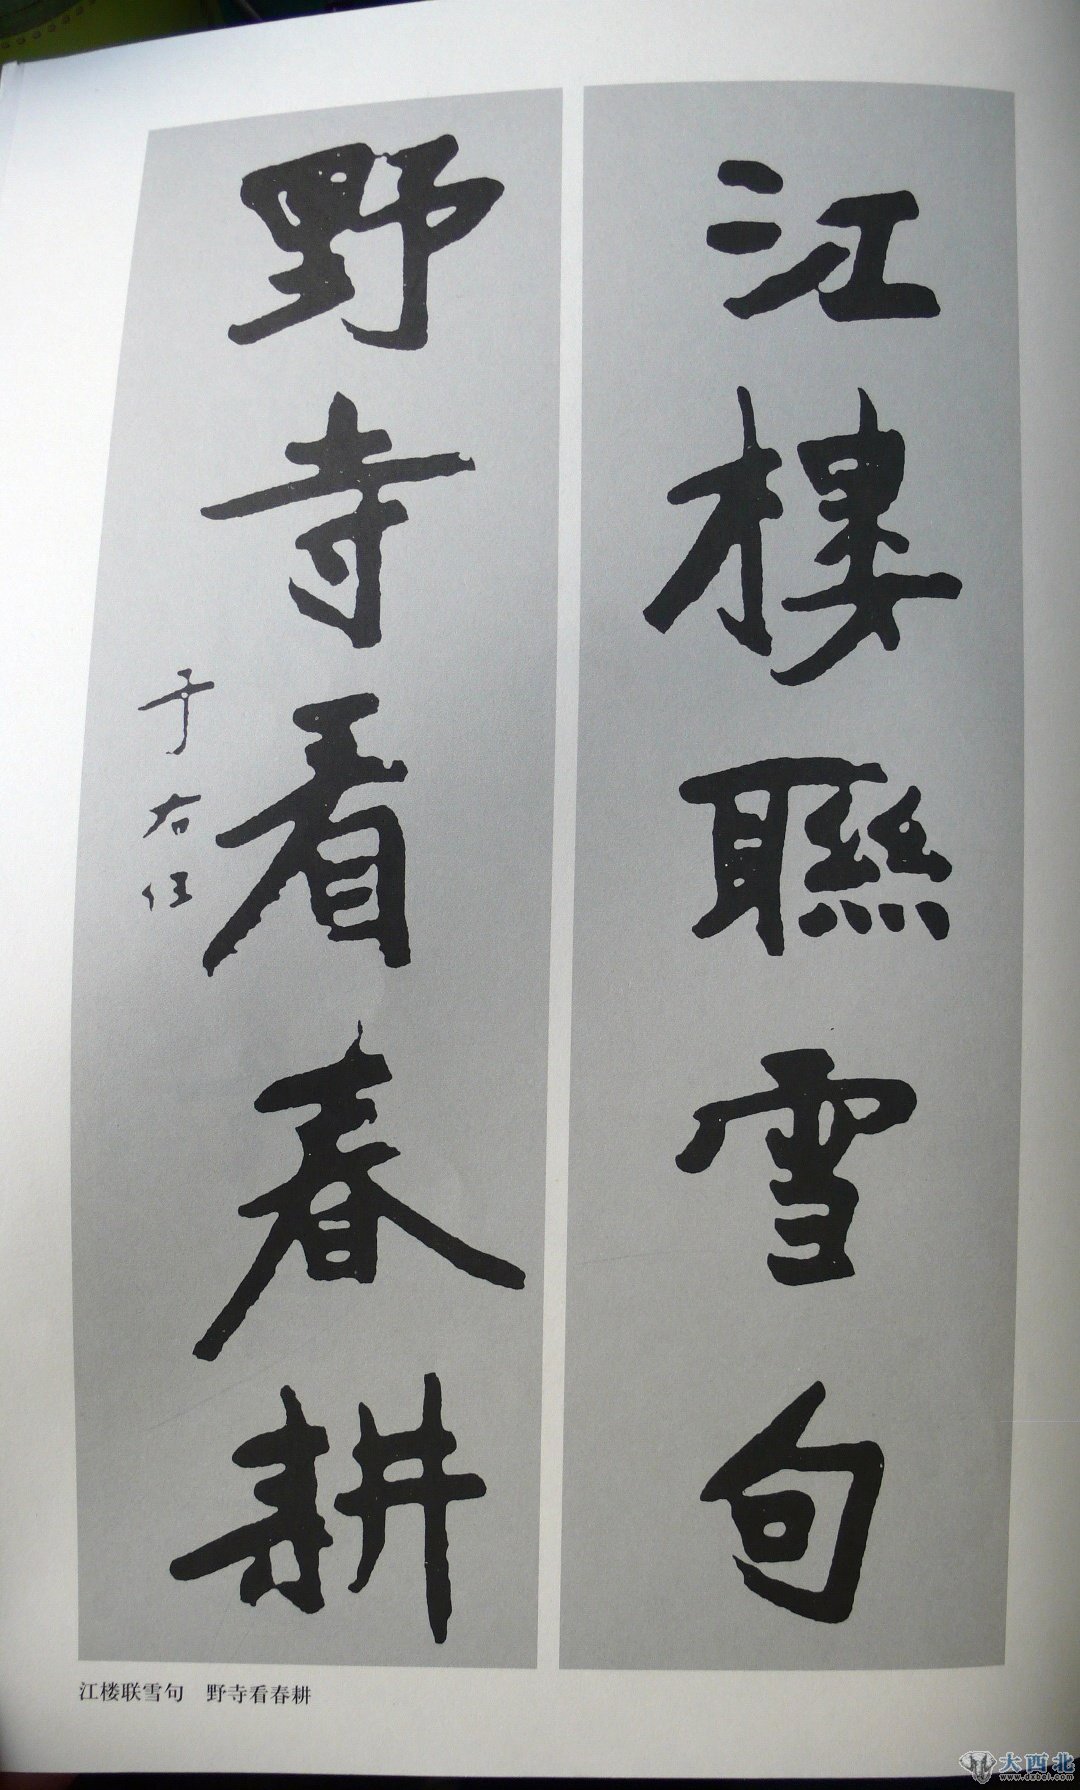 江樓聯雪句
野寺看春耕
于右任
江楼联雪句 野寺看春耕
大西北
www.dxbei.com